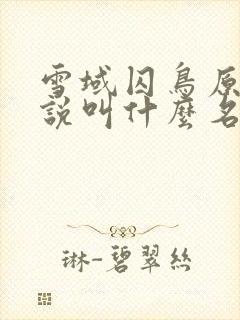 雪域囚鳥原
說叫什麼名
琳-碧翠絲